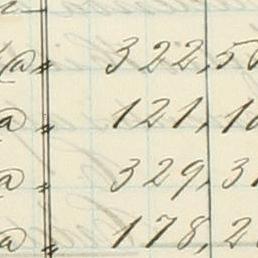 @ " 322,50
@ " 121,10
@ " 329,31
@ " 178,2